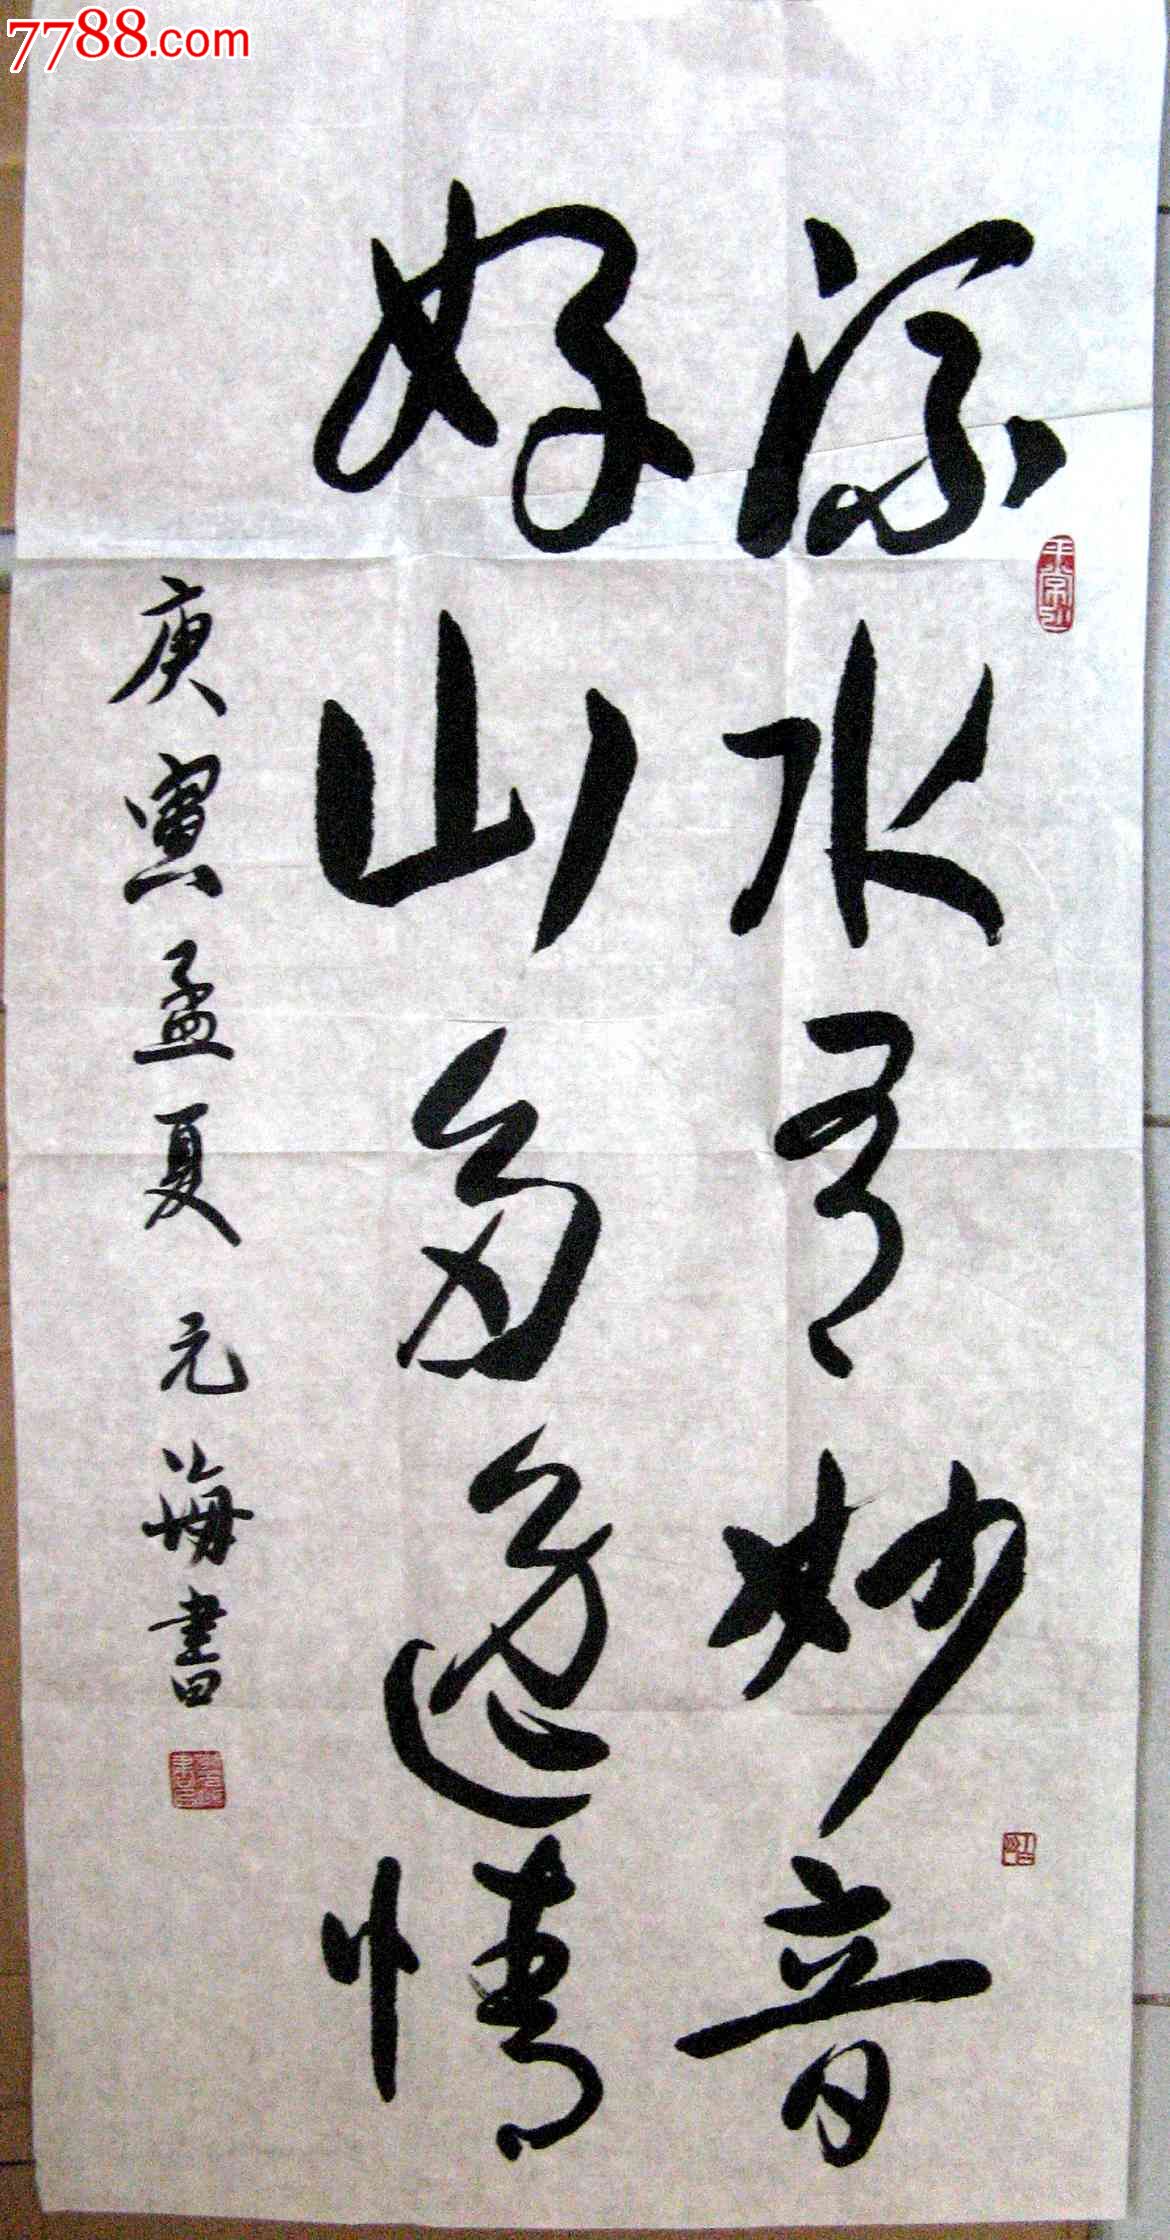 7788.com
流水有妙音
好山多逸情
庚寅孟夏 元海書
平常心